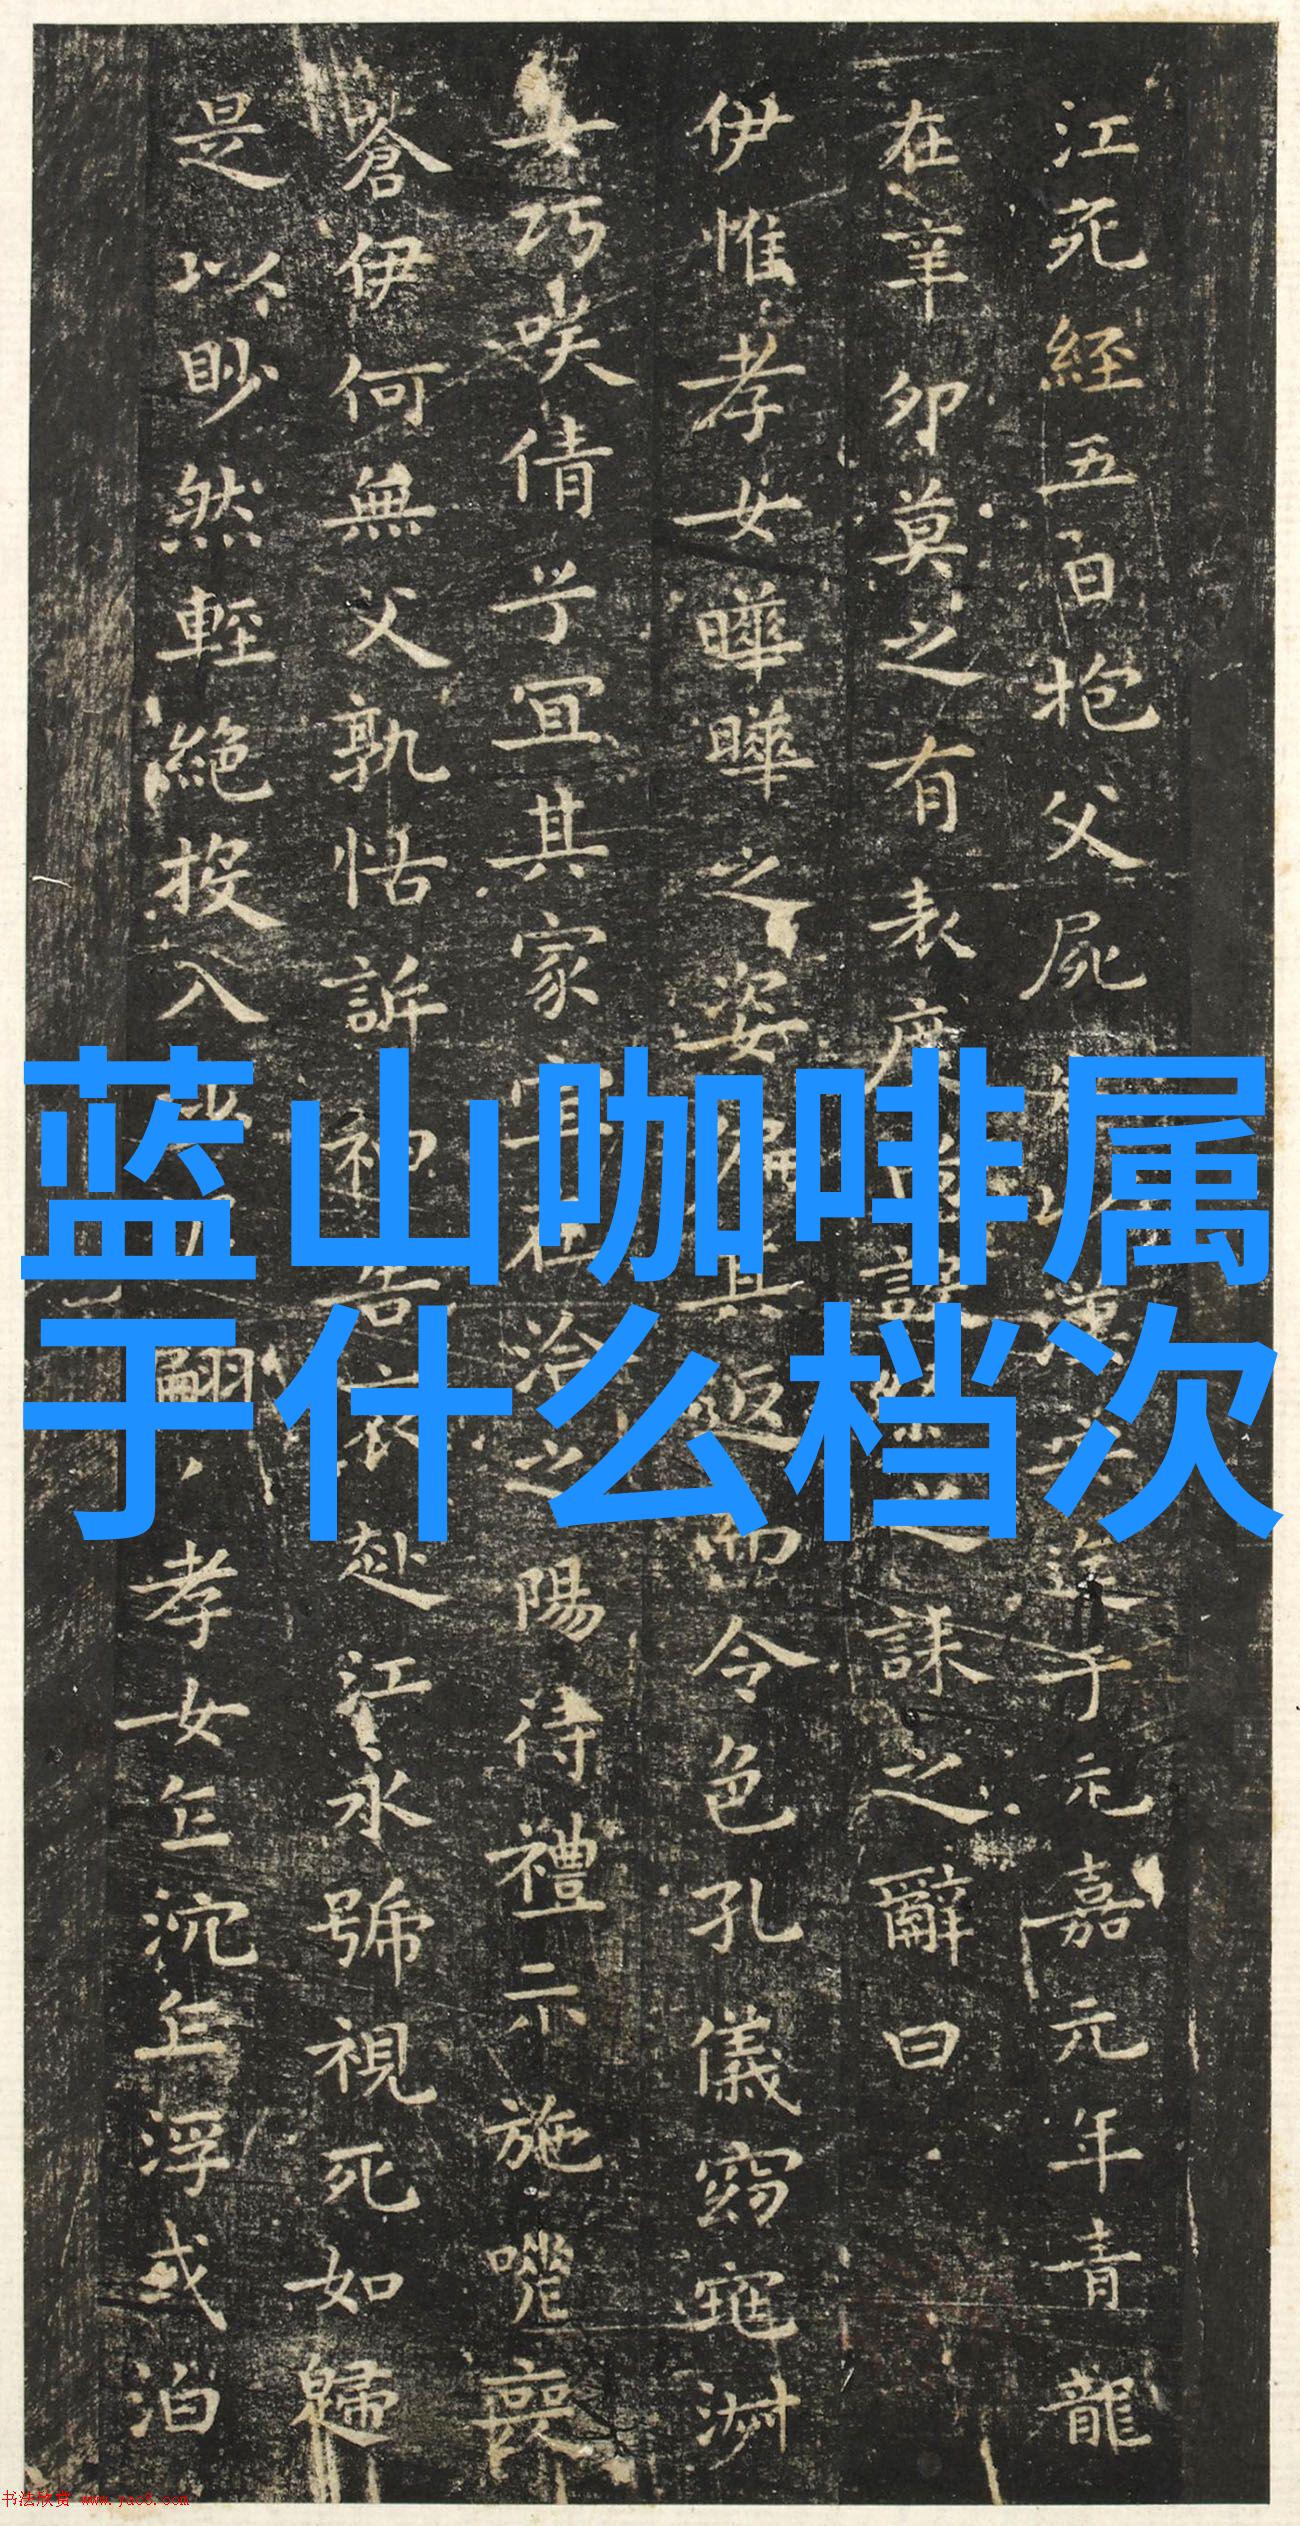 江死經五日抱父屍
于元嘉元年青龍
在辛卯莫之有表度
誄之辭曰
伊惟孝女曄曄之姿
其返而令色孔儀窈窕淑
女巧咲倩兮宜其家
在洽之陽待禮未施嗟喪
蒼伊何無父孰怙訴神告
赴江永號視死如歸
是以眇然輕絕投入
翩孝女乍沉乍浮或泊
蓝山咖啡属
于什么档次
书法欣赏 www.yac8.com